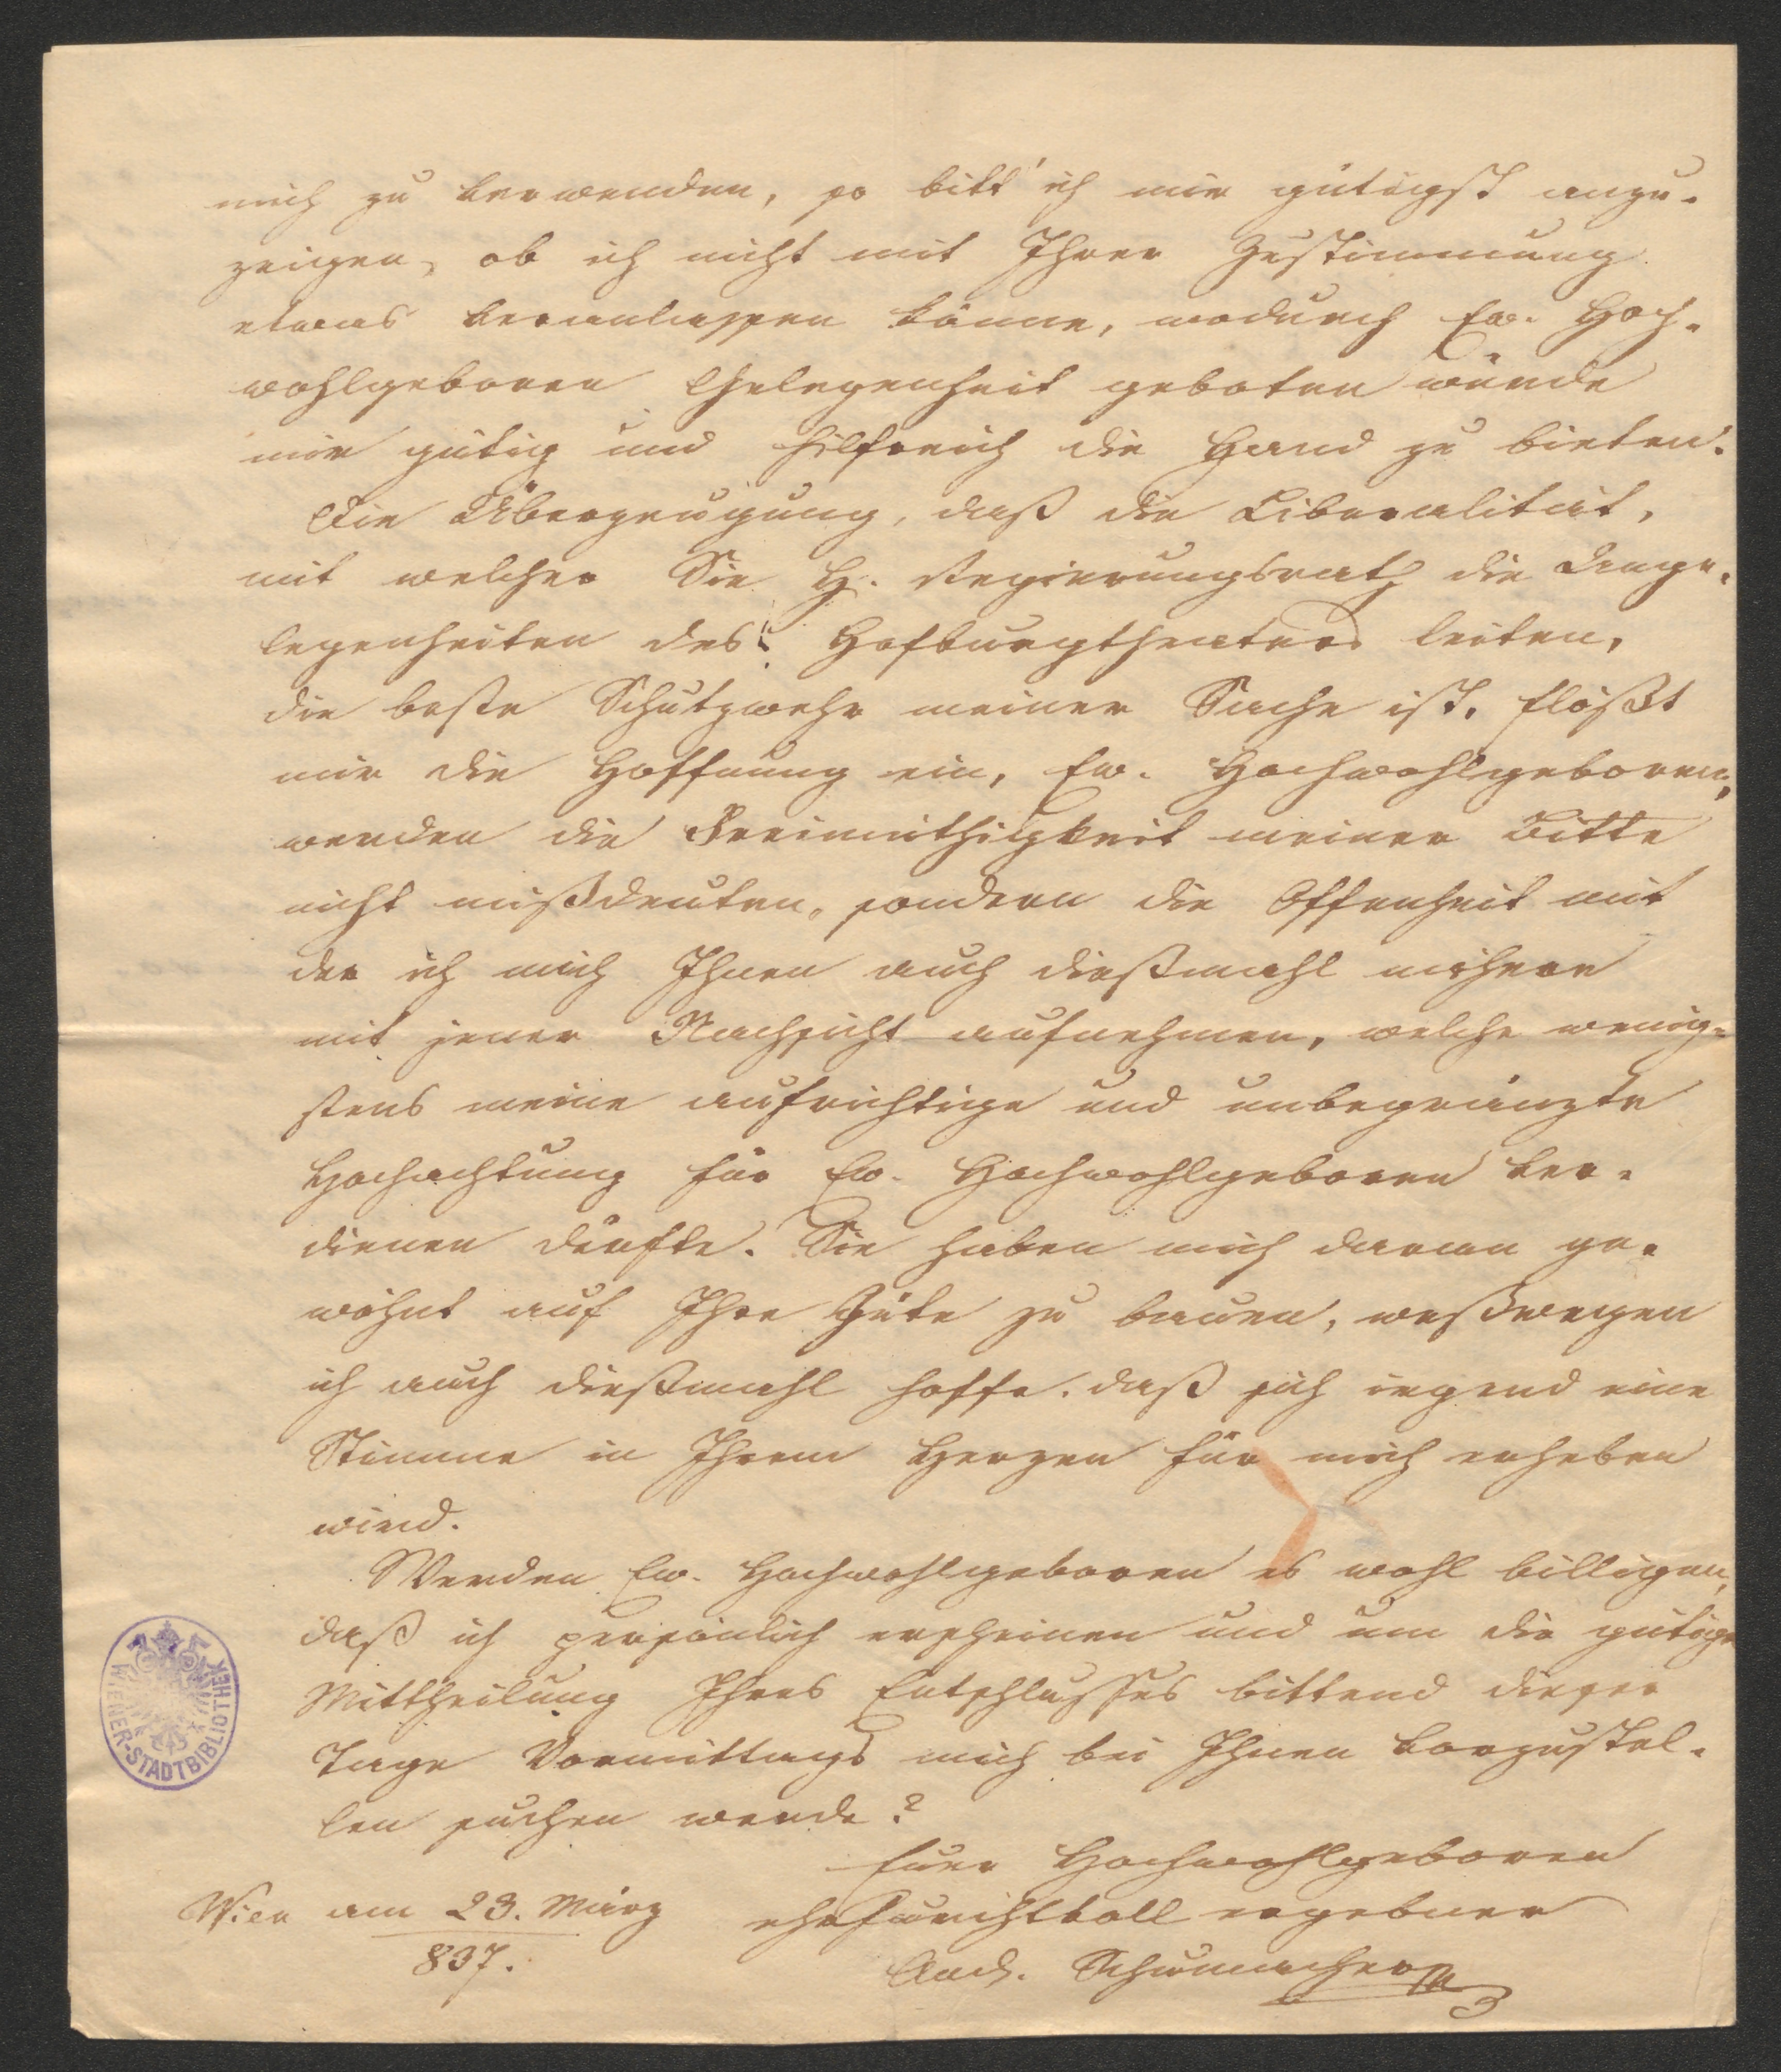 mich zu verwenden, so bitt' ich mir gütigst anzu-
zeigen, ob ich nicht mit Ihrer Zustimmung
etwas veranlassen könne, wodurch Ew. Hoch-
wohlgeboren Gelegenheit geboten würde
mir gütig und hilfreich die Hand zu bieten.
Die Überzeugung, daß die Liberalität,
mit welcher Sie H. Regierungsrath die Ange-
legenheiten des Hofburgtheaters leiten,
die beste Schutzwehr meiner Sache ist, flößt
mir die Hoffnung ein, Ew. Hochwohlgeboren,
werden die Freimüthigkeit meiner Bitte
nicht mißdeuten, sondern die Offenheit mit
der ich mich Ihnen auch dießmahl nähere
mit jener Nachsicht aufnehmen, welche wenig-
stens meine aufrichtige und unbegränzte
Hochachtung für Ew. Hochwohlgeboren ver-
dienen dürfte. Sie haben mich daran ge-
wöhnt auf Ihre Güte zu bauen, weßwegen
ich auch dießmahl hoffe, daß sich irgend eine
Stimme in Ihrem Herzen für mich erheben
wird.
Werden Ew. Hochwohlgeboren es wohl billigen,
daß ich persönlich erscheinen und um die gütige
Mittheilung Ihres Entschlusses bittend dieser
Tage Vormittags mich bei Ihnen vorzustel-
len suchen werde?
Euer Hochwohlgeboren
Wien am 23. März ehrfurchtvoll ergebner
837. And. Schumacher
WIENER-STADTBIBLIOTHEK